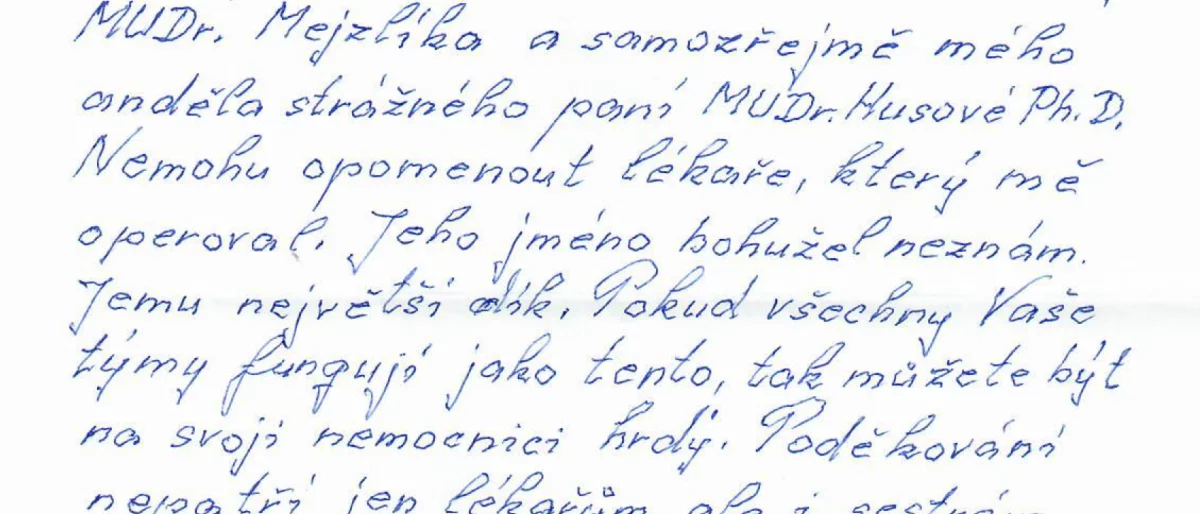 MUDr. Mejzlíka a samozřejmě mého
anděla strážného paní MUDr. Husové Ph.D.
Nemohu opomenout lékaře, který mě
operoval. Jeho jméno bohužel neznám.
Jemu největší dík. Pokud všechny Vaše
týmy fungují jako tento, tak můžete být
na svoji nemocnici hrdý. Poděkování
nepatří jen lékařům ale i